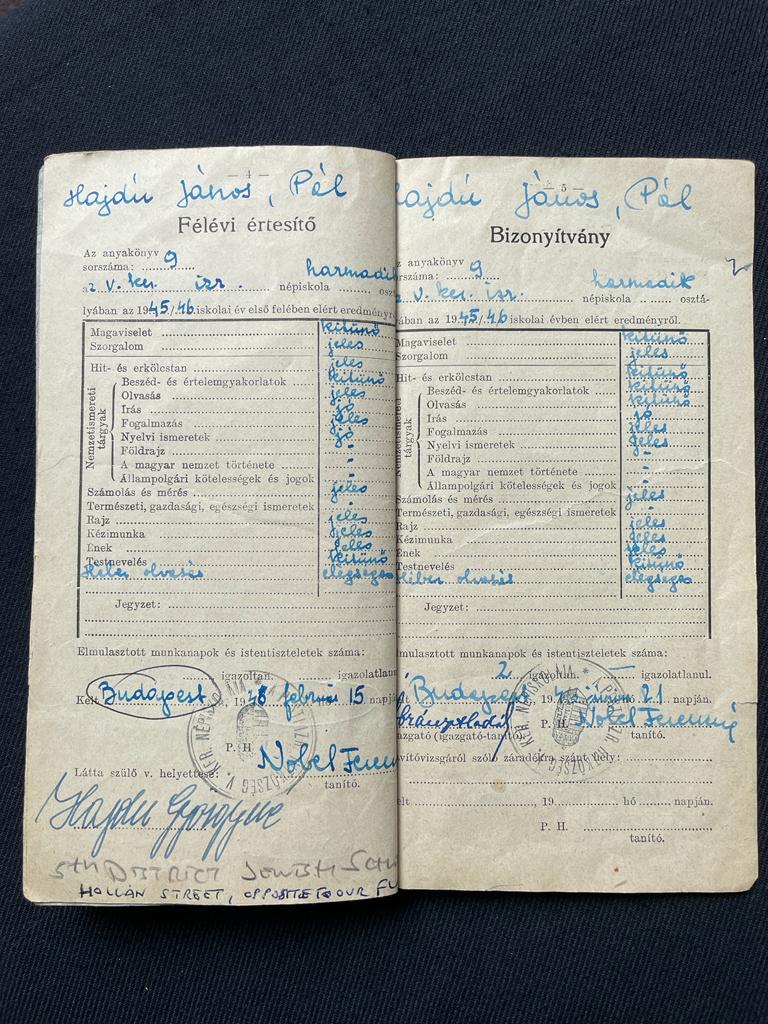 — 4 —
Hajdú János, Pál
Félévi értesítő
Az anyakönyv
sorszáma: 9
az V. ker. izr. népiskola harmadik oszt
lyában az 1945/46 iskolai év első felében elért eredményr
Magaviselet kitünő
Szorgalom jeles
Hit- és erkölcstan jeles
Nemzetismereti tárgyak
Beszéd- és értelemgyakorlatok kitünő
Olvasás jeles
Írás jó
Fogalmazás jeles
Nyelvi ismeretek jó
Földrajz -
A magyar nemzet története -
Állampolgári kötelességek és jogok -
Számolás és mérés jeles
Természeti, gazdasági, egészségi ismeretek -
Rajz jeles
Kézimunka jeles
Ének jeles
Testnevelés kitünő
Héber olvasás elégséges
Jegyzet:
Elmulasztott munkanapok és istentiszteletek száma:
igazoltan. igazolatlanu
Kelt Budapest, 1946 február 15 napján.
P. H. Nobel Feren
tanító.
Látta szülő v. helyettese:
Hajdu Györgyné
5TH DISTRICT JEWISH SCH
HOLLÁN STREET, OPPOSITE TO OUR FL
— 5 —
Hajdú János, Pál
Bizonyítvány
z anyakönyv
rszáma: 9
V. ker. izr. népiskola harmadik osztá-
ában az 1945/46 iskolai évben elért eredményről.
Magaviselet kitünő
Szorgalom jeles
Hit- és erkölcstan kitünő
Nemzetismereti tárgyak
Beszéd- és értelemgyakorlatok kitünő
Olvasás kitünő
Írás jó
Fogalmazás jeles
Nyelvi ismeretek jeles
Földrajz -
A magyar nemzet története -
Állampolgári kötelességek és jogok -
Számolás és mérés jeles
Természeti, gazdasági, egészségi ismeretek -
Rajz jeles
Kézimunka jeles
Ének jeles
Testnevelés kitünő
Héber olvasás elégséges
Jegyzet:
mulasztott munkanapok és istentiszteletek száma:
2 igazoltan. — igazolatlanul.
Budapest, 1946 június 21 napján.
P. H. Nobel Ferencné
azgató (igazgató-tanító). tanító.
vítóvizsgáról szóló záradékra szánt hely:
elt , 19 hó napján.
P. H.
tanító.